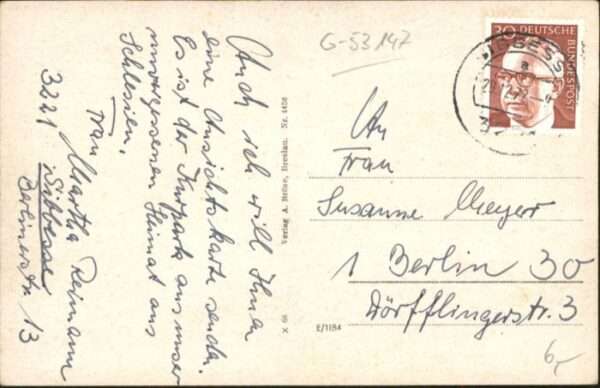 Auch ich will Ihnen
eine Ansichtskarte senden.
Es ist der Kurpark aus unser
unvergessenen Heimat aus
Schlesien.
Frau
Martha Reimann
3221 Sibbesse
Berlinerstr 13
Verlag A. Bruse, Breslau. Nr. 4408
X 66
E/1184
G-53147
30 DEUTSCHE
BUNDESPOST
SIBBESSE
a
An
Frau
Susanne Meyer
1 Berlin 30
Dörfflingerstr. 3
6,-